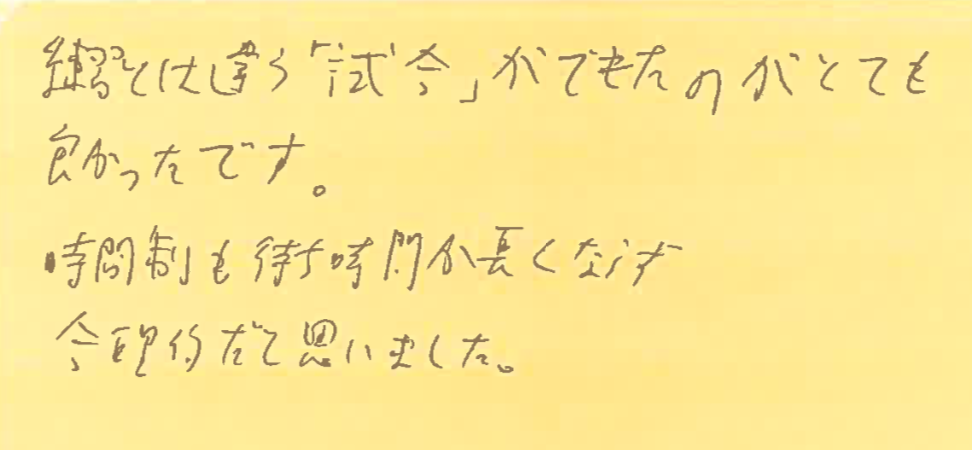 練習とは違う「試合」ができたのがとても
良かったです。
時間制も待ち時間が長くならず
合理的だと思いました。